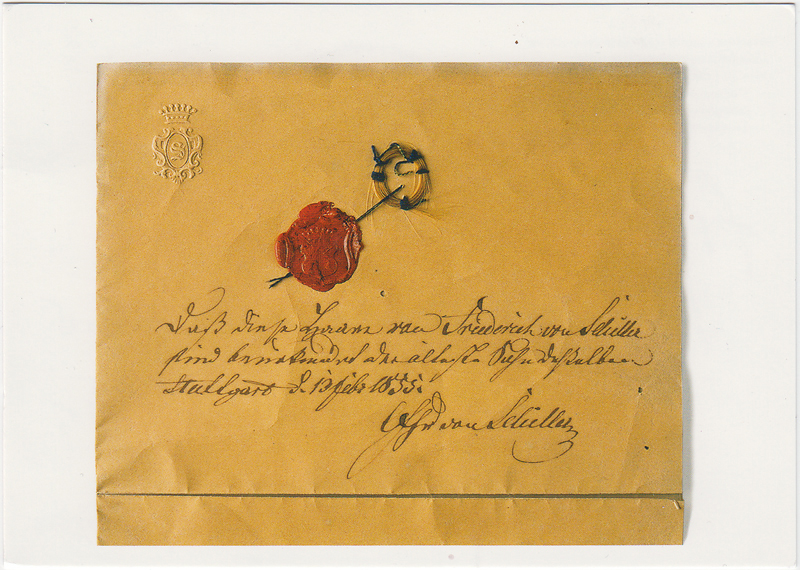 S
Daß diese Haare von Friederich von Schiller
sind beurkundet der älteste Sohn desselben
Stuttgart d. 13 Febr 1855.
CFhr von Schiller